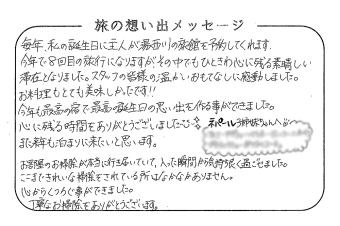 旅の想い出メッセージ
毎年、私の誕生日に主人が湯西川の旅館を予約してくれます。
今年で8回目の旅行になりますがその中でもひときわ心に残る素晴しい
滞在となりました。スタッフの皆様の温かいおもてなしに感動しました。
お料理もとても美味しかったです!!
今年も最高の宿で最高の誕生日の思い出を作る事ができました。
心に残る時間をありがとうございました
また来年も泊まりに来たいと思います。
ネパール
お部屋のお掃除が本当に行き届いていて、入った瞬間から気持ち良く過ごせました。
ここまできれいな掃除をされている所はなかなかありません。
心からくつろぐ事ができました。
丁寧なお掃除をありがとうございます。